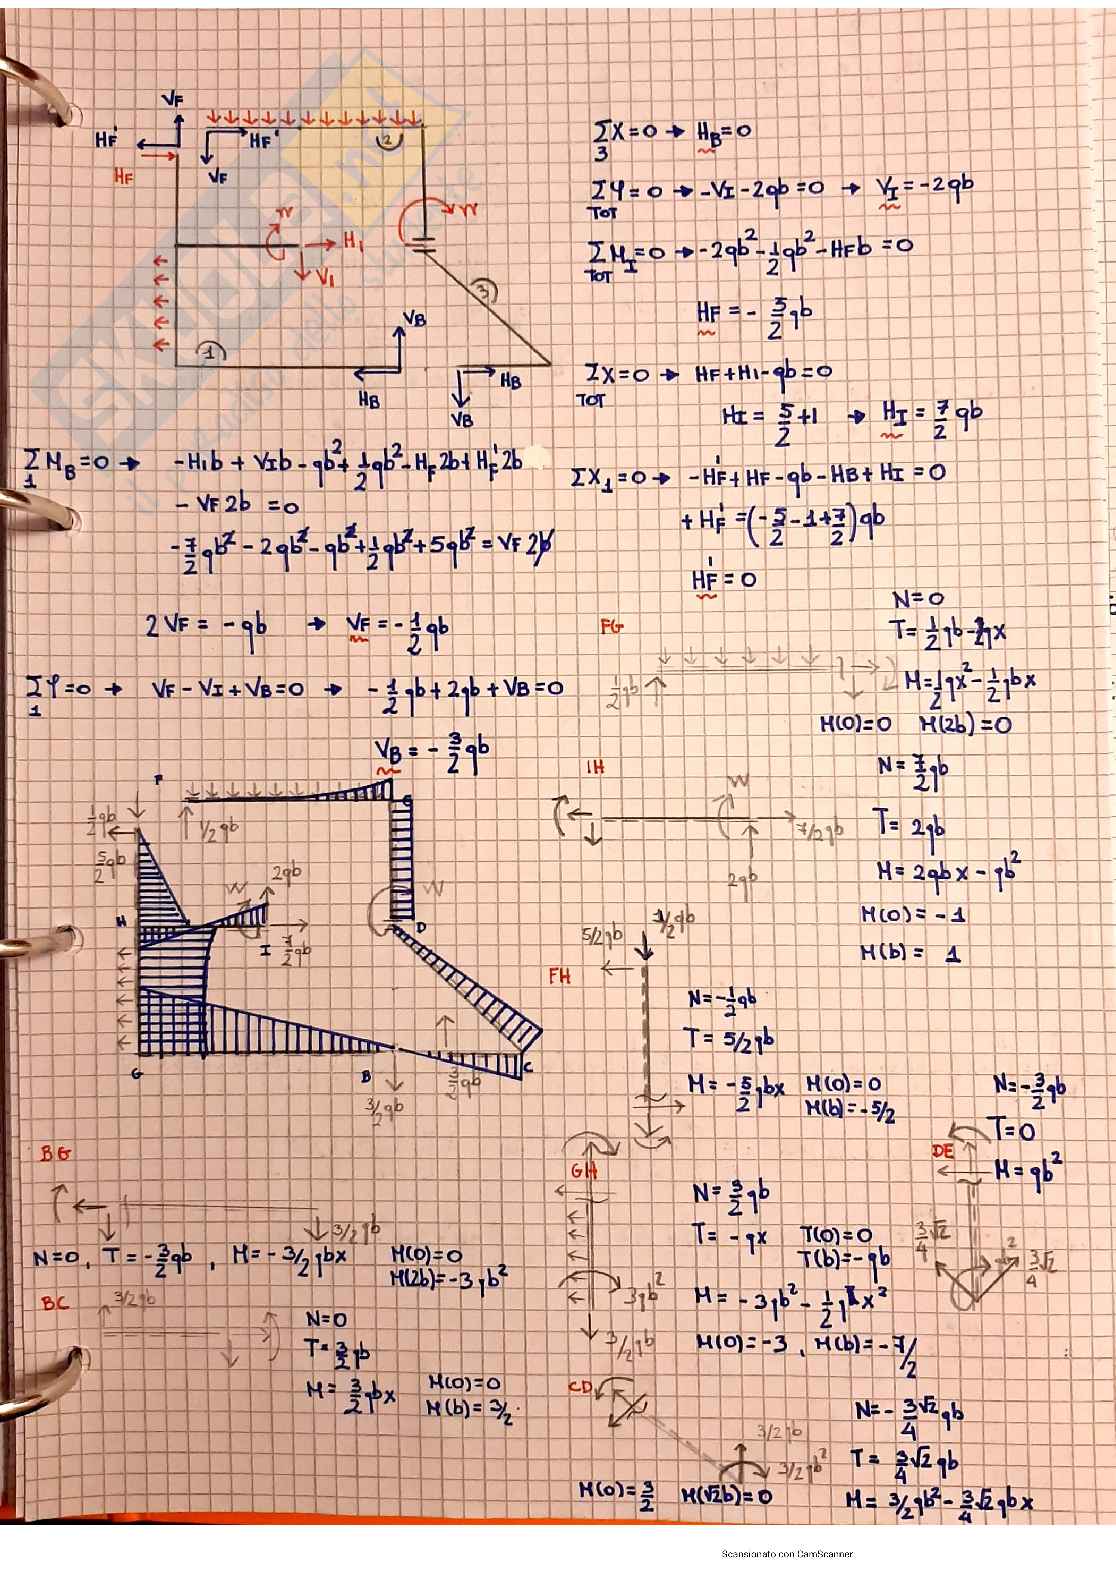 VF
HF'
HF
HF'
VF
2
W
H1
V1
W
3
1
VB
HB
HB
VB
ΣX=0 → HB=0
3
ΣY=0 → -VI-2qb=0 → VI=-2qb
TOT
ΣMI=0 → -2qb²-1/2qb²-HFb=0
TOT
HF=-5/2qb
ΣX=0 → HF+HI-qb=0
TOT
HI=5/2+1 → HI=7/2qb
ΣMB=0 → -HIb+VIb-qb²+1/2qb²-HF2b+HF'2b
1
-VF2b=0
-7/2qb²-2qb²-qb²+1/2qb²+5qb²=VF2b
ΣX1=0 → -HF'+HF-qb-HB+HI=0
+HF'=(-5/2-1+7/2)qb
HF'=0
2VF=-qb → VF=-1/2qb
ΣY=0 → VF-VI+VB=0 → -1/2qb+2qb+VB=0
1
VB=-3/2qb
FG
1/2qb
N=0
T=1/2qb-qx
M=1/2qx²-1/2qbx
M(0)=0 M(2b)=0
IH
W
7/2qb
2qb
N=7/2qb
T=2qb
M=2qbx-qb²
M(0)=-1
M(b)=1
F
1/2qb
1/2qb
5/2qb
2qb
W
W
H
I
7/2qb
D
G
B
C
3/2qb
3/2qb
FH
5/2qb
1/2qb
N=-1/2qb
T=5/2qb
M=-5/2qbx M(0)=0
M(b)=-5/2
DE
N=-3/2qb
T=0
M=qb²
3√2/4
3√2/4
BG
3/2qb
N=0, T=-3/2qb, M=-3/2qbx M(0)=0
M(2b)=-3qb²
GH
3qb²
3/2qb
N=3/2qb
T=-qx T(0)=0
T(b)=-qb
M=-3qb²-1/2qx²
M(0)=-3, M(b)=-7/2
BC
3/2qb
N=0
T=3/2qb
M=3/2qbx M(0)=0
M(b)=3/2
CD
3/2qb
3/2qb²
N=-3√2/4qb
T=3/4√2qb
M=3/2qb²-3/4√2qbx
M(0)=3/2 M(√2b)=0
Scansionato con CamScanner